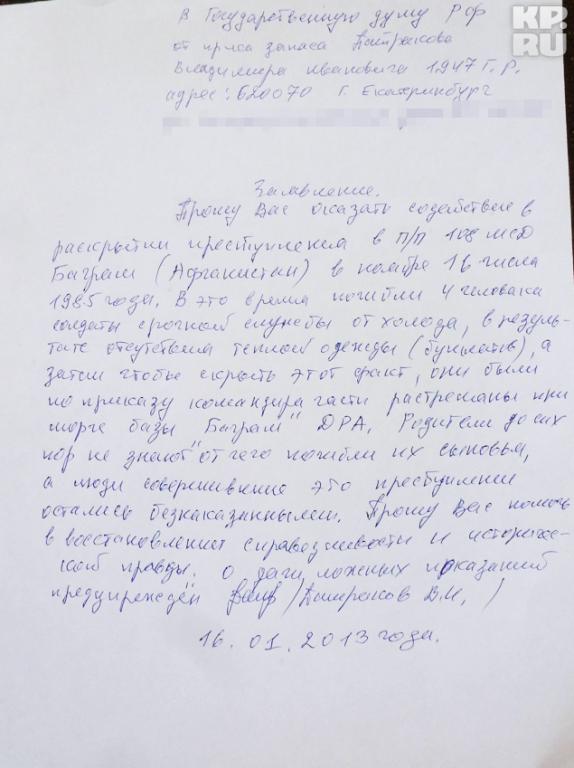 KP.RU
В Государственную думу РФ
от пр-ка запаса
Владимира Ивановича 1947 г.р.
адрес: 620070 г. Екатеринбург
Заявление.
Прошу Вас оказать содействие в
раскрытии преступления в п/п 108 мсд
Баграм (Афганистан) в ноябре 16 числа
1985 года. В это время погибли 4 человека
солдаты срочной службы от холода, в резуль-
тате отсутствия теплой одежды (бушлатов), а
затем чтобы скрыть этот факт, они были
по приказу командира части растреляны при
морге базы "Баграм" ДРА. Родители до сих
пор не знают от чего погибли их сыновья,
а люди совершившие это преступление
остались безнаказанными. Прошу Вас помочь
в восстановлении справедливости и историчес-
кой правды. О дачи ложных показаний
предупреждён В.И. /
16.01.2013 года.